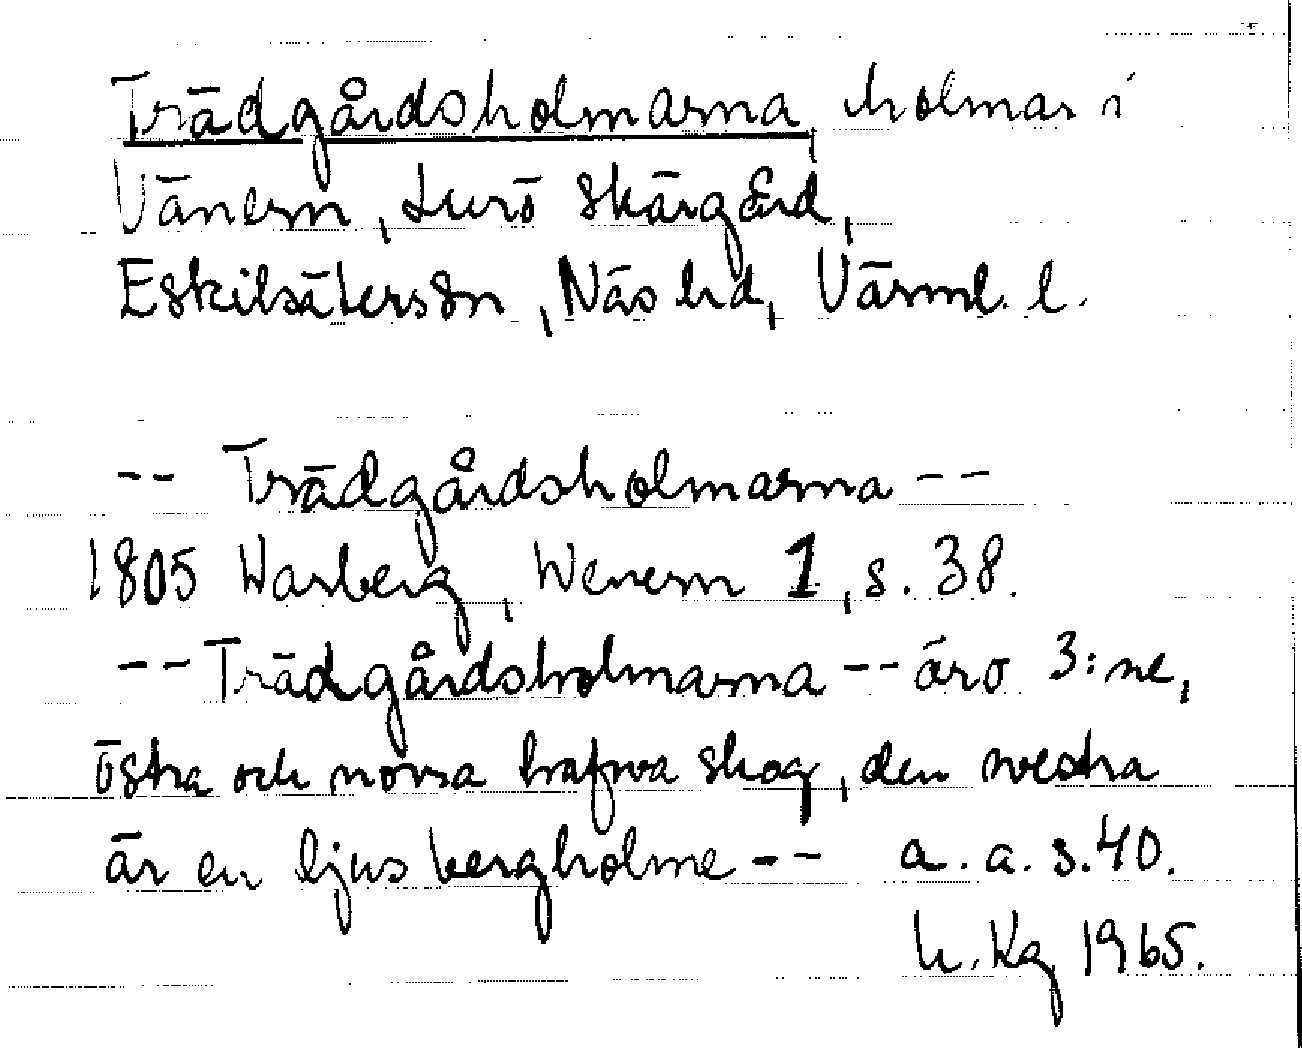 Trädgårdsholmarna, holmar i
Vänern, Lurö skärgård,
Eskilsäters sn, Näs hd, Värml. l.
-- Trädgårdsholmarna --
1805 Warberg, Wenern 1, s. 38.
-- Trädgårdsholmarna -- äro 3:ne,
östra och norra hafva skog, den westra
är en ljus bergholme -- a. a. s. 40.
Kg 1965.